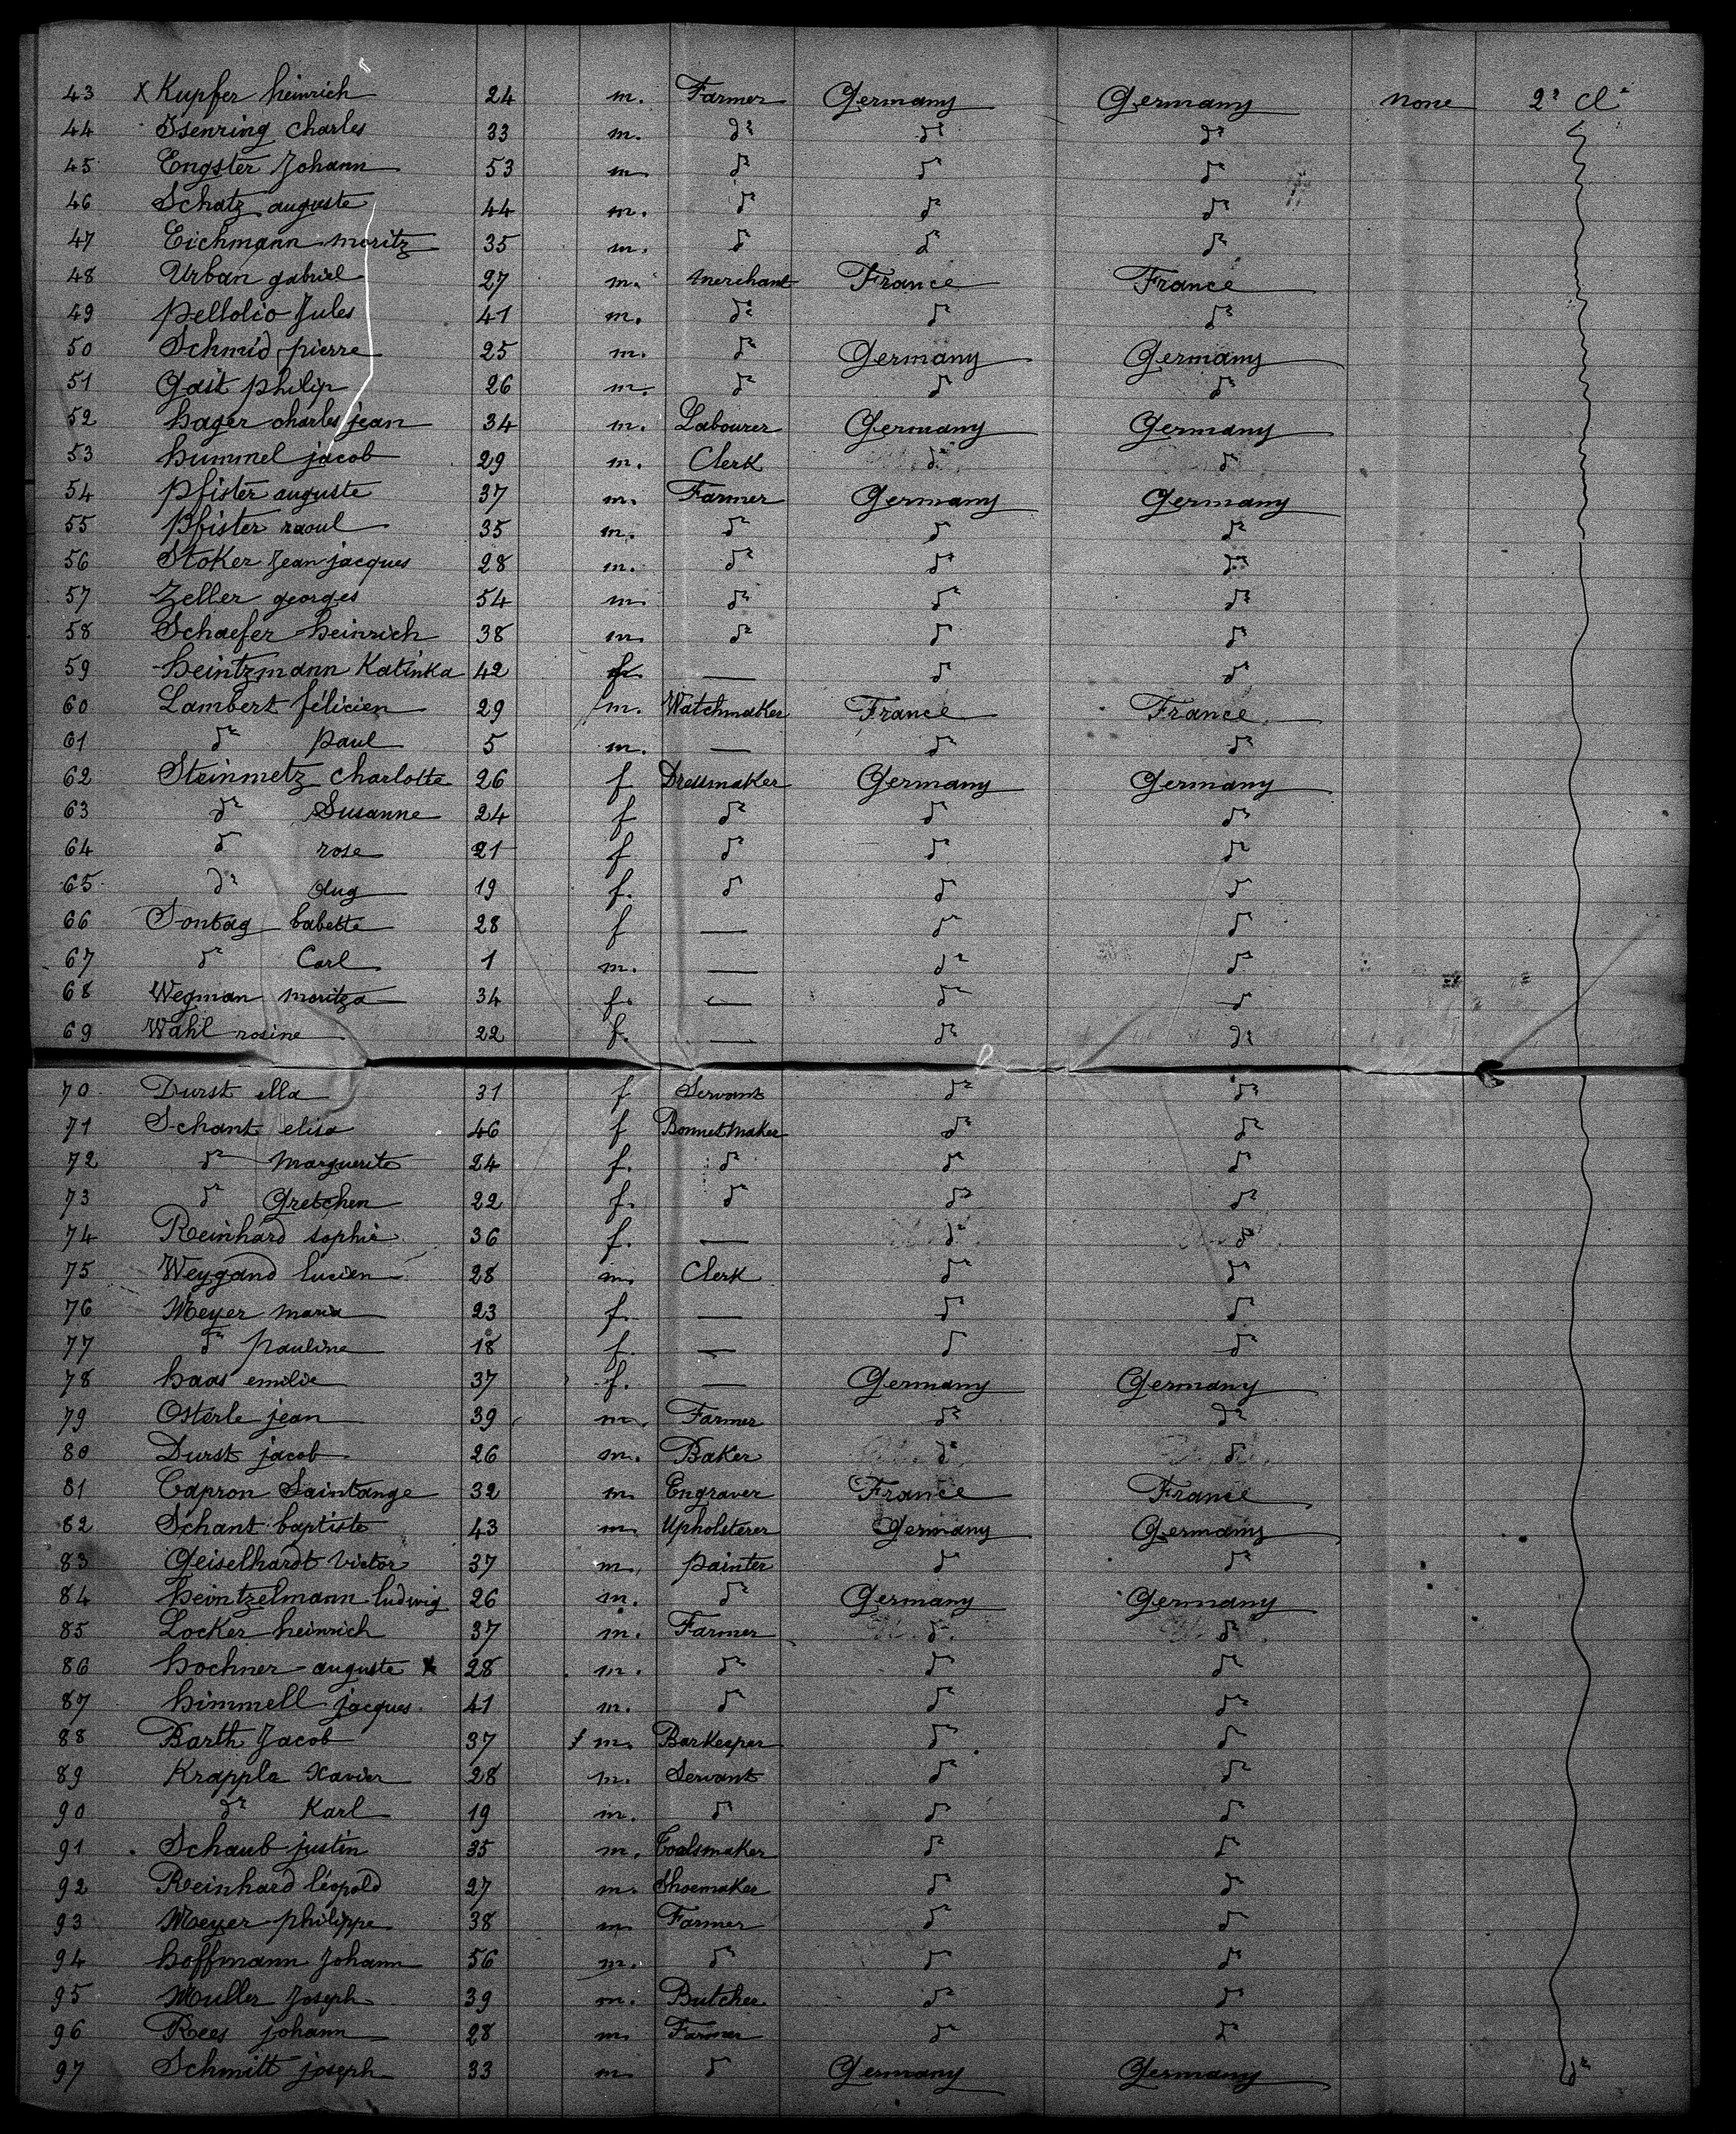 43 X Kupfer heinrich 24 m. Farmer Germany Germany none 2ª Cl
44 Isenring Charles 33 m. dº dº dº
45 Engster Johann 53 m dº dº dº
46 Schatz auguste 44 m. dº dº dº
47 Eichmann moritz 35 m. dº dº dº
48 Urban gabriel 27 m. merchant France France
49 pellolio Jules 41 m. dº dº dº
50 Schmid pierre 25 m. dº Germany Germany
51 Gait philip 26 m. dº dº dº
52 hager charles jean 34 m. Labourer Germany Germany
53 hummel jacob 29 m. Clerk dº dº
54 pfister auguste 37 m. Farmer Germany Germany
55 Pfister raoul 35 m. dº dº dº
56 Stoker Jean jacques 28 m. dº dº dº
57 Zeller georges 54 m. dº dº dº
58 Schaefer heinrich 38 m. dº dº dº
59 heintzmann Katinka 42 f. — dº dº
60 Lambert félicien 29 m. Watchmaker France France
61 dº paul 5 m. — dº dº
62 Steinmetz Charlotte 26 f Dressmaker Germany Germany
63 dº Susanne 24 f dº dº dº
64 dº rose 21 f dº dº dº
65 dº Aug 19 f. dº dº dº
66 Sontag babette 28 f — dº dº
67 dº Carl 1 m. — dº dº
68 Wegman moritza 34 f. — dº dº
69 Wahl rosine 22 f. — dº dº
70 Durst ella 31 f Servant dº dº
71 Schant elisa 46 f Bonnetmaker dº dº
72 dº Marguerite 24 f. dº dº dº
73 dº Gretchen 22 f. dº dº dº
74 Reinhard sophie 36 f. — dº dº
75 Weygand lucien 28 m. Clerk dº dº
76 Meyer maria 23 f. — dº dº
77 dº pauline 18 f. — dº dº
78 haas emilie 37 f. — Germany Germany
79 Osterle jean 39 m. Farmer dº dº
80 Durst jacob 26 m. Baker dº dº
81 Capron Saintange 32 m. Engraver France France
82 Schant baptiste 43 m. Upholsterer Germany Germany
83 Geiselhardt Victor 37 m. painter dº dº
84 heintzelmann ludwig 26 m. dº Germany Germany
85 Locker heinrich 37 m. Farmer dº dº
86 hochner auguste x 28 m. dº dº dº
87 himmell jacques 41 m. dº dº dº
88 Barth Jacob 37 m. Barkeeper dº dº
89 Krappla Xavier 28 m. Servant dº dº
90 dº Karl 19 m. dº dº dº
91 Schaub justin 35 m. Toolsmaker dº dº
92 Reinhard léopold 27 m. Shoemaker dº dº
93 Meyer philippe 38 m Farmer dº dº
94 hoffmann Johann 56 m. dº dº dº
95 Muller Joseph 39 m. Butcher dº dº
96 Rees johann 28 m. Farmer dº dº
97 Schmitt joseph 33 m dº Germany Germany dº